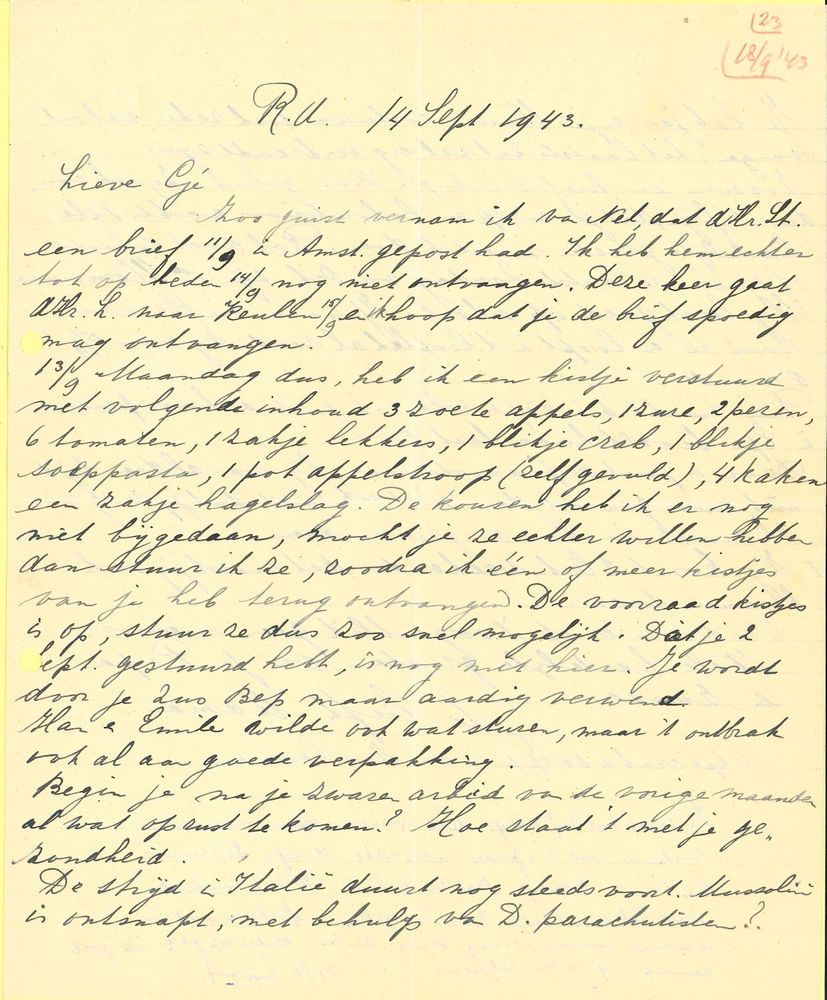 23
18/9 '43
R.d. 14 Sept 1943.
Lieve Cjé
Zoo juist vernam ik va Nel, dat d'Hr. St.
een brief 11/9 i Amst. gepost had. Ik heb hem echter
tot op heden 14/9 nog niet ontvangen. Deze keer gaat
d'Hr. L. naar Keulen 15/9 en ik hoop dat je de brief spoedig
mag ontvangen.
13/9 Maandag dus, heb ik een kistje verstuurd
met volgende inhoud 3 zoete appels, 1 zure, 2 peren,
6 tomaten, 1 zakje lekkers, 1 blikje crab, 1 blikje
soeppasta, 1 pot appelstroop (zelf gevuld), 4 kaken
een zakje hagelslag. De kousen heb ik er nog
niet bijgedaan, mocht je ze echter willen hebben
dan stuur ik ze, zoodra ik één of meer kistjes
van je heb terug ontvangen. De voorraad kistjes
is op, stuur ze dus zoo snel mogelijk. Dat je 2
Sept. gestuurd hebt, is nog niet hier. Je wordt
door je zus Bep maar aardig verwend
Han e Emile wilde ook wat sturen, maar 't ontbrak
ook al aan goede verpakking.
Begin je na je zware arbeid van de vorige maanden
al wat op rust te komen? Hoe staat 't met je ge„
zondheid.
De strijd i Italië duurt nog steeds voort. Mussolini
is ontsnapt, met behulp va D. parachutisten?.